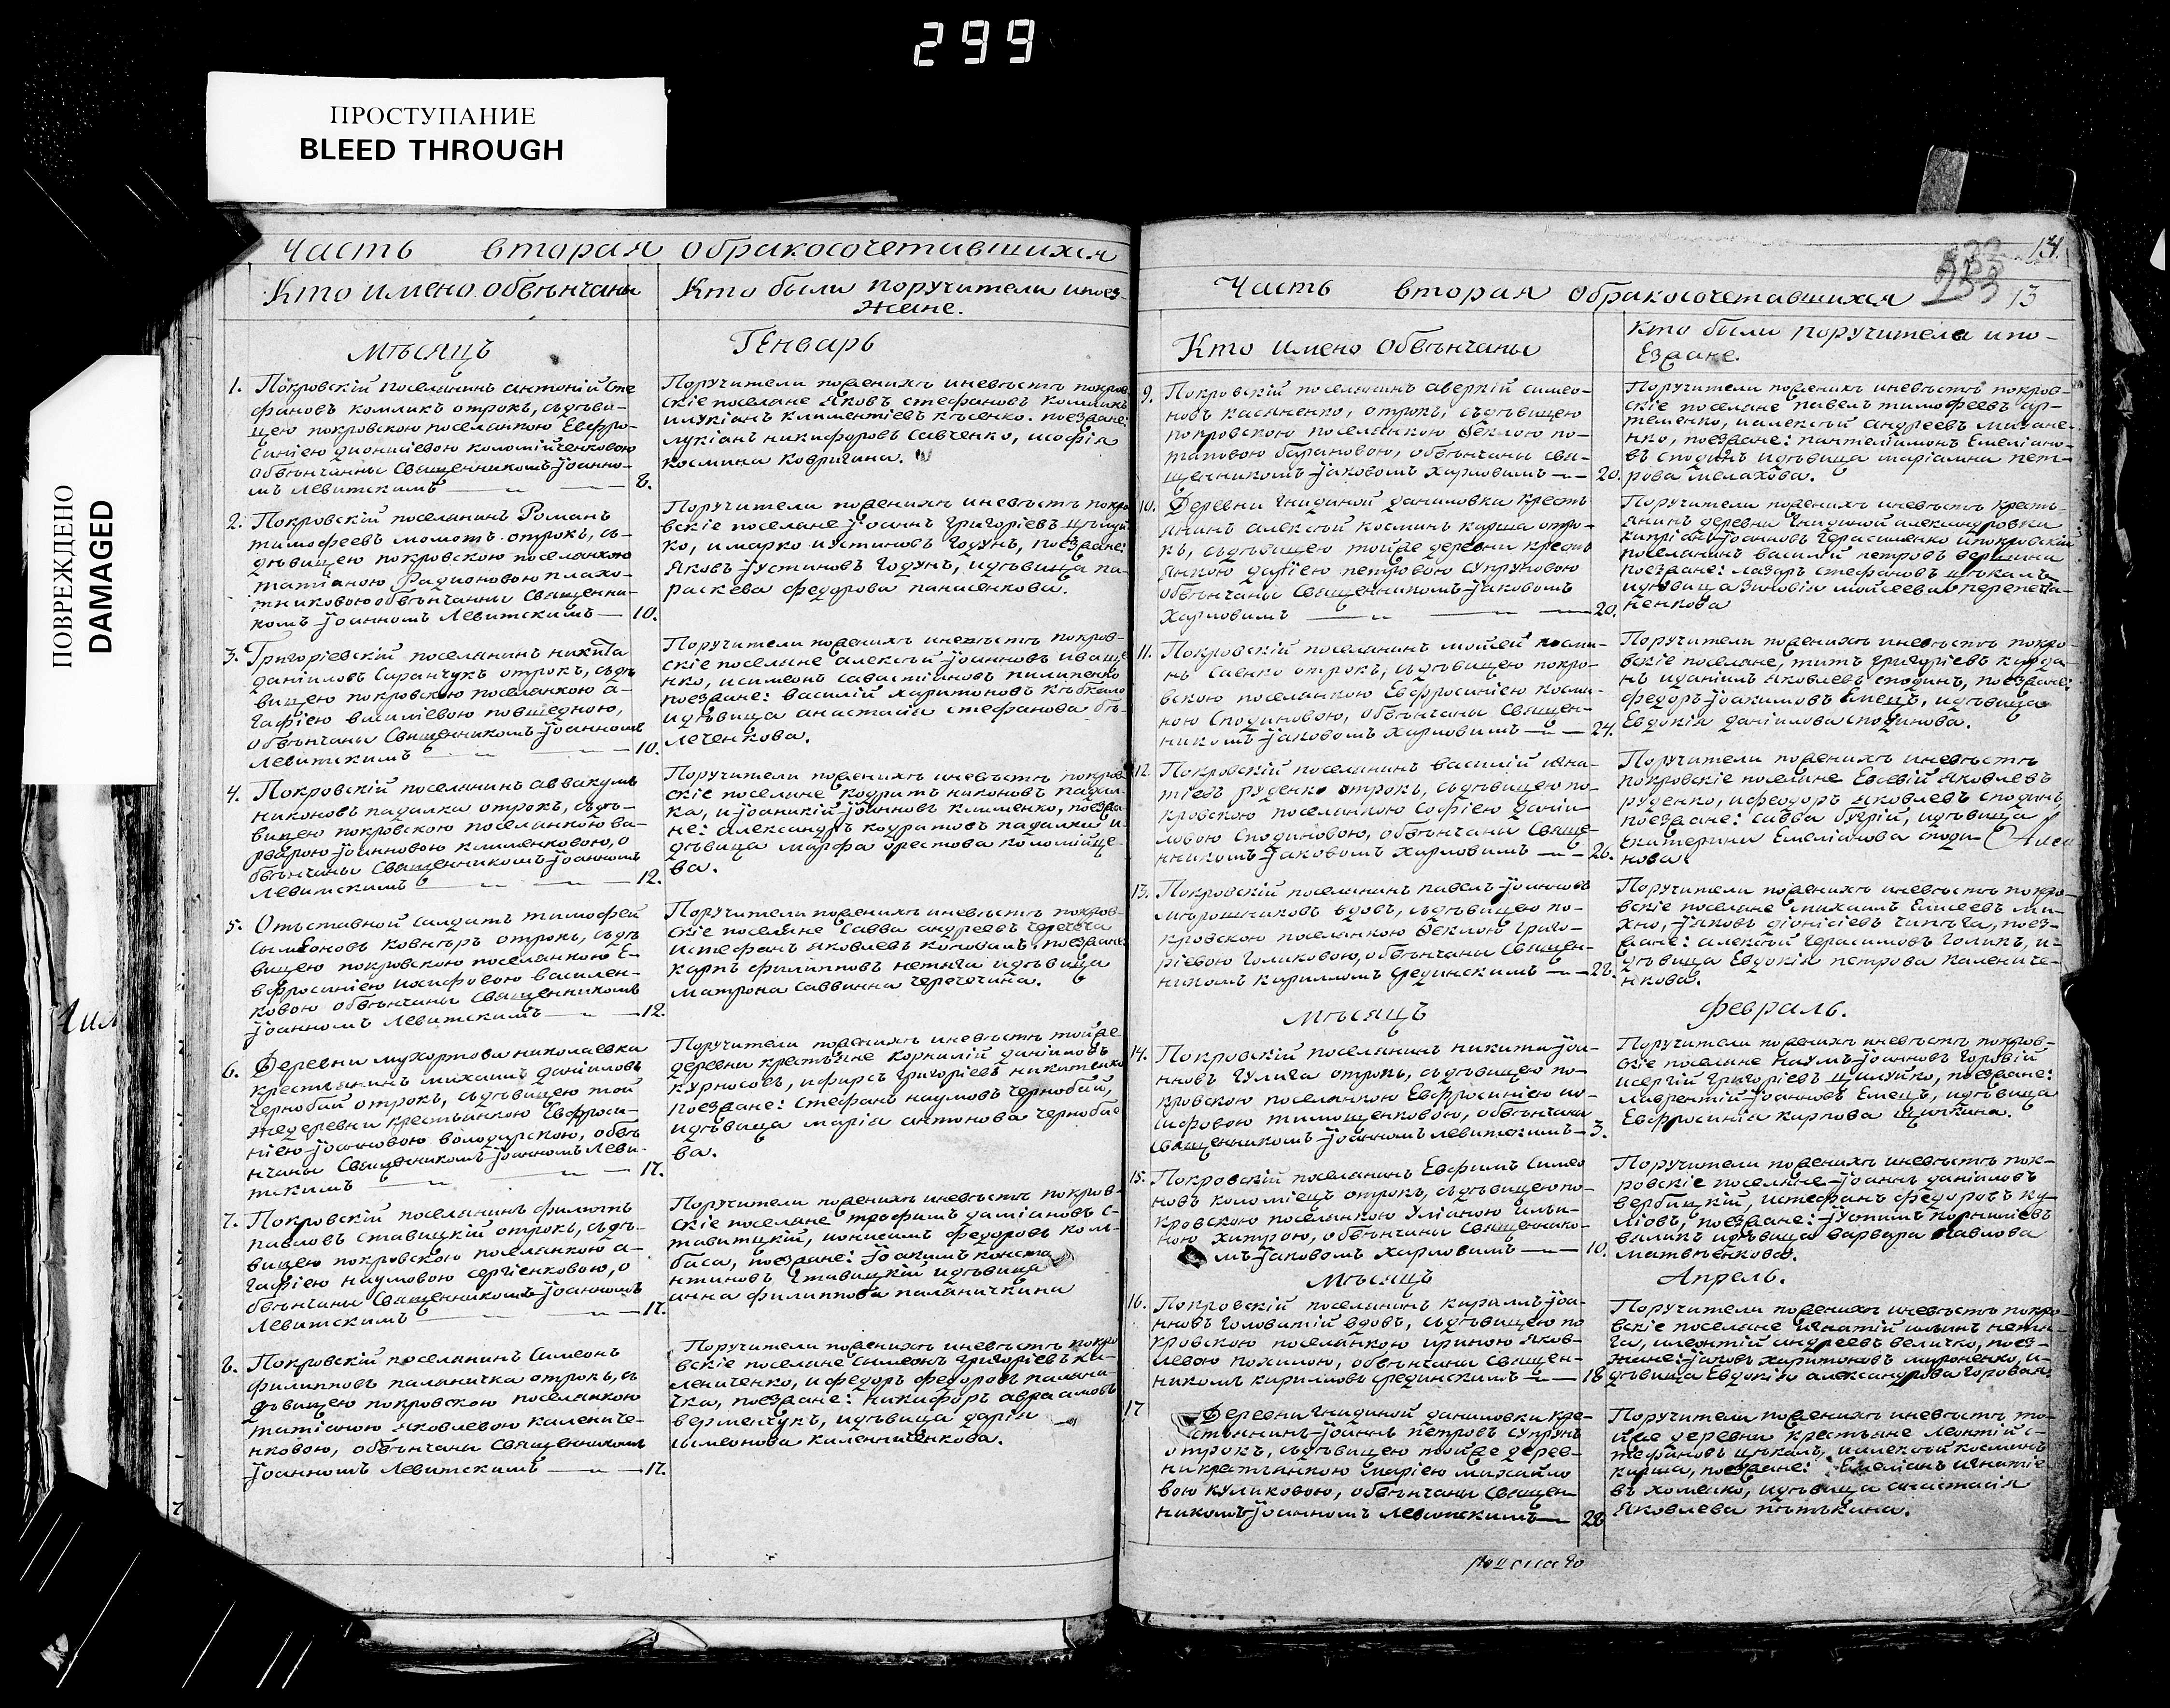 299
ПРОСТУПАНИЕ
BLEED THROUGH
ПОВРЕЖДЕНО
DAMAGED
Часть вторая обракосочетавшихся
Кто имено обвѣнчаны
Кто были поручители ипоез-
жане.
Мѣсяцъ
Генварь
1. Покровскій поселянинъ антоній Сте
фановъ комликъ отрокъ, съдѣви-
цею покровскою поселянкою Евфро-
синіею дионисіевою коломійченковою
обвѣнчаны Священникомъ Іоанно-
мъ Левитскимъ 8.
Поручители поженихѣ иневѣстѣ покров
скіе поселяне Яковъ стефановъ комликъ
илукіанъ климентіевъ косенко. поезжане:
лукіанъ никифоровъ Савченко, исофія
космина Ковригина.
2. Покровскій поселянинъ Романъ
тимофеевъ момотъ отрокъ, съ-
дѣвицею покровскою поселянкою
татіаною Радионовою плахо-
тниковою обвѣнчаны Священни-
комъ Іоанномъ Левитскимъ 10.
Поручители поженихѣ иневѣстѣ покро
вскіе поселяне Іоаннъ григоріевъ
ко, имарко иустиновъ Годунъ, поезжане:
Яковъ Іустиновъ Годунъ, идѣвица па-
раскева федорова панасенкова.
3. Григоріевскій поселянинъ никита
даніиловъ Саранчукъ отрокъ, съдѣ
вицею покровскою поселянкою а-
гафіею василіевою повшедною,
обвѣнчаны Священникомъ Іоанномъ
Левитскимъ 10.
Поручители поженихѣ иневѣстѣ покров-
скіе поселяне алексѣй Іоанновъ иваще
нко, исимеонъ савастіановъ пилипенко
поезжане: василій харитоновъ
идѣвица анастасія стефанова бѣ-
леченкова.
4. Покровскій поселянинъ аввакумъ
никоновъ падалка отрокъ, съдѣ-
вицею покровскою поселянкою ва-
рварою Іоанновою клименковою, о
бвѣнчаны Священникомъ Іоанномъ
Левитскимъ 12.
Поручители поженихѣ иневѣстѣ покров
скіе поселяне кодратъ никоновъ падал-
ка, и Іоаникій Іоанновъ клименко, поезжа-
не: александръ кодратовъ падалка и-
дѣвица марфа орестова коломійце-
ва.
5. Отъставной Салдатъ тимофей
Сымеоновъ ковнѣръ отрокъ, съдѣ
вицею покровскою поселянкою Е-
вфросиніею иосифовою василен-
ковою обвѣнчаны Священникомъ
Іоанномъ Левитскимъ 12.
Поручители поженихѣ иневѣстѣ покров-
скіе поселяне Савва андреевъ
истефанъ Яковлевъ поезжане:
карпъ филипповъ нетяга идѣвица
матрона саввина
6. Деревни мухортова николаевка
крестьянинъ михаилъ даніиловъ
Чернобай отрокъ, съдѣвицею той
жедеревни крестьянкою Евфроси-
ніею Іоанновою володарскою, обвѣ
нчаны Священникомъ Іоанномъ Леви-
тскимъ 17.
Поручители поженихѣ иневѣстѣ тойже
деревни крестьяне корнилій даніиловъ
курносовъ, ифирсъ григоріевъ никитенко
поезжане: Стефанъ наумовъ чернобай,
идѣвица марія антонова чернобае
ва.
7. Покровскій поселянинъ филиппъ
павловъ ставицкій отрокъ, съдѣ-
вицею покровского поселянкою а-
гафіею наумовою сергіенковою, о
бвѣнчаны Священникомъ Іоанномъ
Левитскимъ 17.
Поручители поженихѣ иневѣстѣ покров-
скіе поселяне трофимъ даміановъ с-
тавитцкій, ионисимъ федоровъ кол-
баса, поезжане: Іоакимъ конста
нтиновъ Ставицкій идѣвица
анна филиппова паляничкина
8. Покровскій поселянинъ Симеонъ
филипповъ паляничка отрокъ, съ
дѣвицею покровскою поселянкою
татіаною Яковлевою калениче-
нковою, обвѣнчаны Священникомъ
Іоанномъ Левитскимъ 17.
Поручители поженихѣ иневѣстѣ покро
вскіе поселяне Симеонъ григоріевъ ка-
лениченко, ифедоръ федоровъ паляни-
чка, поезжане: никифоръ авраамовъ
верменчукъ, идѣвица дарія
сымеонова калениченкова.
13
Часть вторая обракосочетавшихся
Кто имено обвѣнчаны
Кто были поручители ипо-
Езжане.
9. Покровскій поселянинъ аверкій симео-
новъ касяненко, отрокъ, съдѣвицею
покровскою поселянкою Феклою по-
таповою барановою, обвѣнчаны свя-
щенникомъ Іаковомъ харловимъ 20.
Поручители поженихѣ иневѣстѣ покров-
скіе поселяне павелъ тимофеевъ ар-
теменко, иалексѣй андреевъ михане-
нко, поезжане: пантелиимонъ Емеліано-
въ сподинъ идѣвица маріамна пет-
рова малахова.
10. Деревни Гнидиной даниловка кресть
янинъ алексѣй косминъ кирша отро-
къ, съдѣвицею тойже деревни кресть
янкою даріею петровою супруновою
обвѣнчаны Священникомъ Іаковомъ
Харловимъ 20.
Поручители поженихѣ иневѣстѣ кресть-
янинъ деревни Гнидиной александровки
кипріанъ Іоанновъ Герасименко ипокровскій
поселянинъ василій петровъ вершина
поезжане: лазаръ стефановъ
идѣвица Зиновія мойсеева перепеча-
ненкова
11. Покровскій поселянинъ мойсей косми-
нъ Саенко отрокъ, съдѣвицею покро-
вскою поселянкою Евфросиніею косми-
ною Сподиновою, обвѣнчаны Священ-
никомъ Іаковомъ харловимъ 24.
Поручители поженихѣ иневѣстѣ покро-
вскіе поселяне, титъ григоріевъ
нъ иданіилъ Яковлевъ сподинъ, поезжане:
федоръ Іоакимовъ Емецъ, идѣвица
Евдокія даніилова сподинова.
12. Покровскій поселянинъ василій игна-
тіевъ руденко отрокъ, съдѣвицею по-
кровскою поселянкою Софіею даніи-
ловою Сподиновою, обвѣнчаны Свяще-
нникомъ Іаковомъ харловимъ 26.
Поручители поженихѣ иневѣстѣ
покровскіе поселяне Евсевій Яковлевъ
руденко, ифеодоръ Яковлевъ сподинъ
поезжане: савва идѣвица
Екатерина Емеліанова споди-
нова.
13. Покровскій поселянинъ павелъ Іоанновъ
мѣрошниковъ вдовъ, съдѣвицею по-
кровскою поселянкою Феклою григо-
ріевою голиковою, обвѣнчаны Священ-
никомъ кирилломъ 28.
Поручители поженихѣ иневѣстѣ покро-
вскіе поселяне михаилъ Елисеевъ ми-
хно, Іаковъ діонісіевъ поез-
жане: алексѣй Герасимовъ Голикъ, и-
дѣвица Евдокія петрова калениче-
нкова.
Мѣсяцъ
Февраль.
14. Покровскій поселянинъ никита Іоа-
нновъ гулига отрокъ, съдѣвицею по-
кровскою поселянкою Евфросиніею ио-
сифовою тимощенковою, обвѣнчаны
Священникомъ Іоанномъ левитскимъ 3.
Поручители поженихѣ иневѣстѣ покров-
скіе поселяне Наумъ Іоанновъ Горовій
исергій григоріевъ поезжане:
лаврентій Іоанновъ Емецъ, идѣвица
Евфросинія карпова щипкина.
15. Покровскій поселянинъ Евфимъ Симео
новъ коломіецъ отрокъ, съдѣвицею по-
кровскою поселянкою Уліаною ильи-
ною хитрою, обвѣнчаны Священнико-
мъ Іаковомъ харловимъ 10.
Поручители поженихѣ иневѣстѣ пок-
ровскіе поселяне Іоаннъ даніиловъ
вербицкій, истефанъ федоровъ ку-
ліовъ, поезжане: Іустинъ корниліевъ
идѣвица варвара павлова
матвѣенкова.
Мѣсяцъ
Апрель.
16. Покровскій поселянинъ кирилъ Іоа-
нновъ головатій вдовъ, съдѣвицею по
кровскою поселянкою ириною Яков-
левою похилою, обвѣнчаны Священ-
никомъ кириломъ 18
Поручители поженихѣ иневѣстѣ покро
вскіе поселяне игнатій ильинъ нетя-
га, илеонтій андреевъ величко, поез-
жане: Іаковъ харитоновъ мироненко, и-
дѣвица Евдокія александрова Горовая.
17 Деревни Гнидиной даниловки кре-
стьянинъ Іоаннъ петровъ супрунъ
отрокъ, съдѣвицею тойже дерев-
ни крестьянкою маріею михайло
вою куликовою, обвѣнчаны Священ
никомъ Іоанномъ левитскимъ 28
Поручители поженихѣ иневѣстѣ то-
йже деревни крестьяне леонтій с-
тефановъ иалексѣй косминъ
кирша, поезжане: Емеліанъ игнатіе-
въ хоменко, идѣвица анастасія
Яковлева